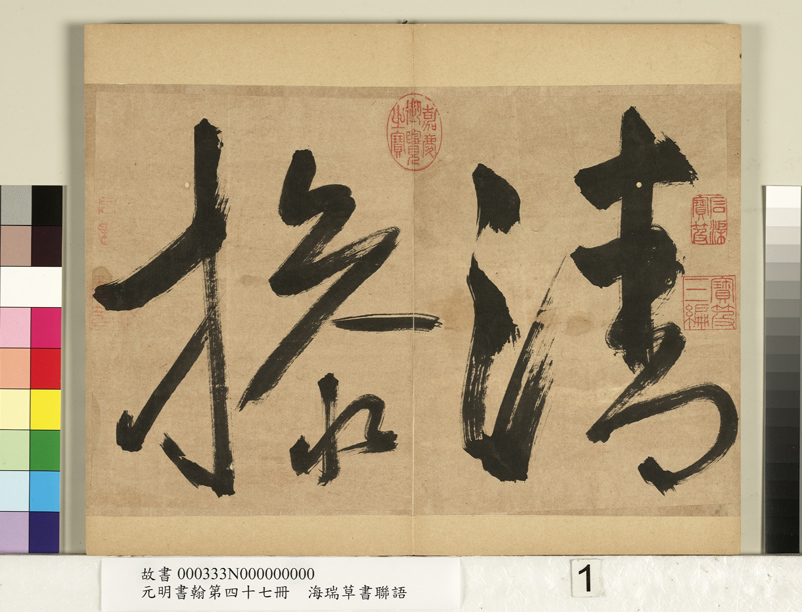 清操
嘉慶御覽之寶
石渠寶笈
寶笈三編
故書 000333N000000000
元明書翰第四十七冊 海瑞草書聯語
1